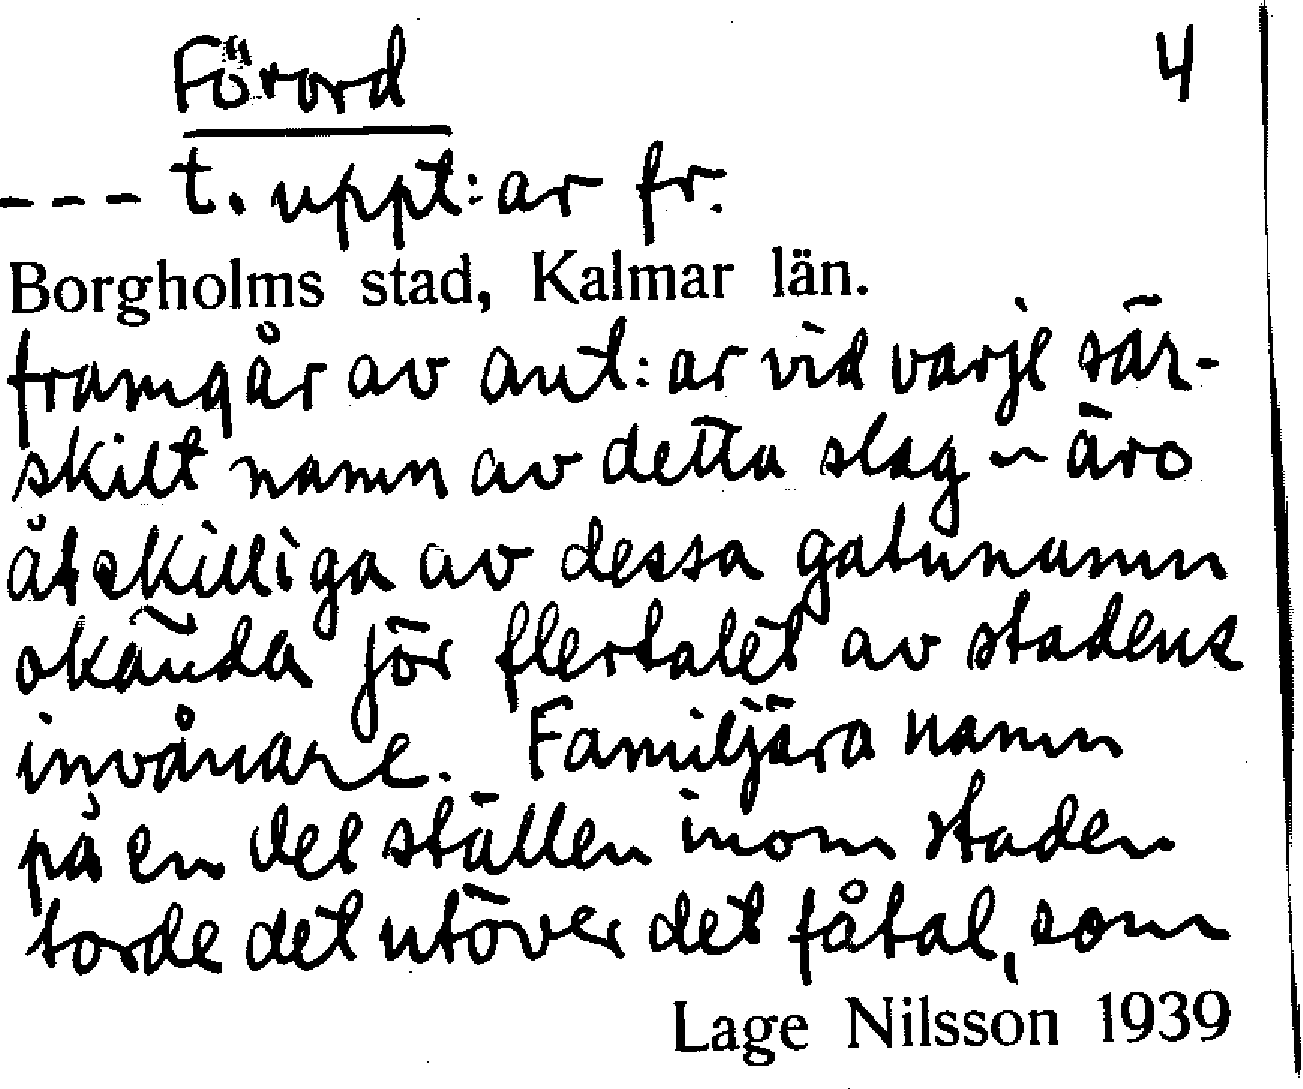 Förord 4
--- t. uppt:ar fr.
Borgholms stad, Kalmar län.
framgår av ant:ar vid varje sär-
skilt namn av detta slag – äro
åtskilliga av dessa gatunamn
okända för flertalet av stadens
invånare. Familjära namn
på en del ställen inom staden
torde det utöver det fåtal, som
Lage Nilsson 1939